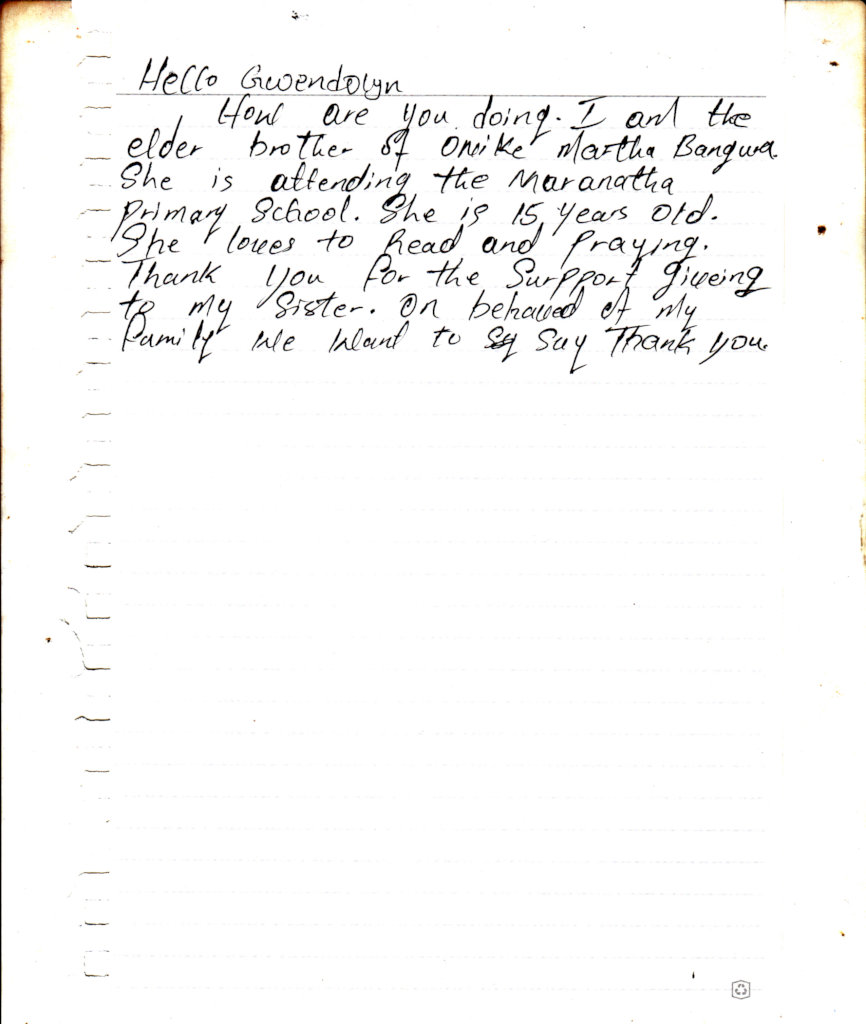 Hello Gwendolyn
How are you doing. I am the
elder brother of Onike Martha Bangura.
She is attending the Maranatha
Primary School. She is 15 years old.
She loves to Read and Praying.
Thank you for the Surpport giveing
to my Sister. On behaved of my
Family We Want to Sy Say Thank you.